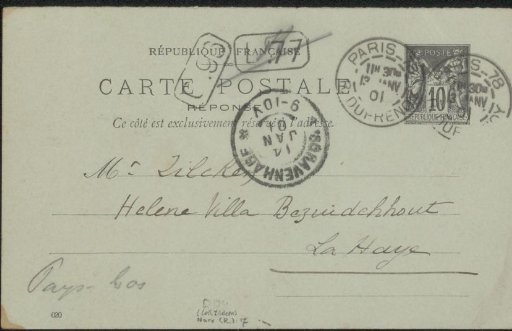 RÉPUBLIQUE FRANÇAISE
CARTE POSTALE
RÉPONSE
Ce côté est exclusivement réservé à l'adresse.
POSTE
10
PARIS
PARIS-78
'S GRAVENHAGE
14
JAN
01
9-10V
Mr. Zilcken
Helene Villa Bezuidenhout
La Haye
Pays-bas
020